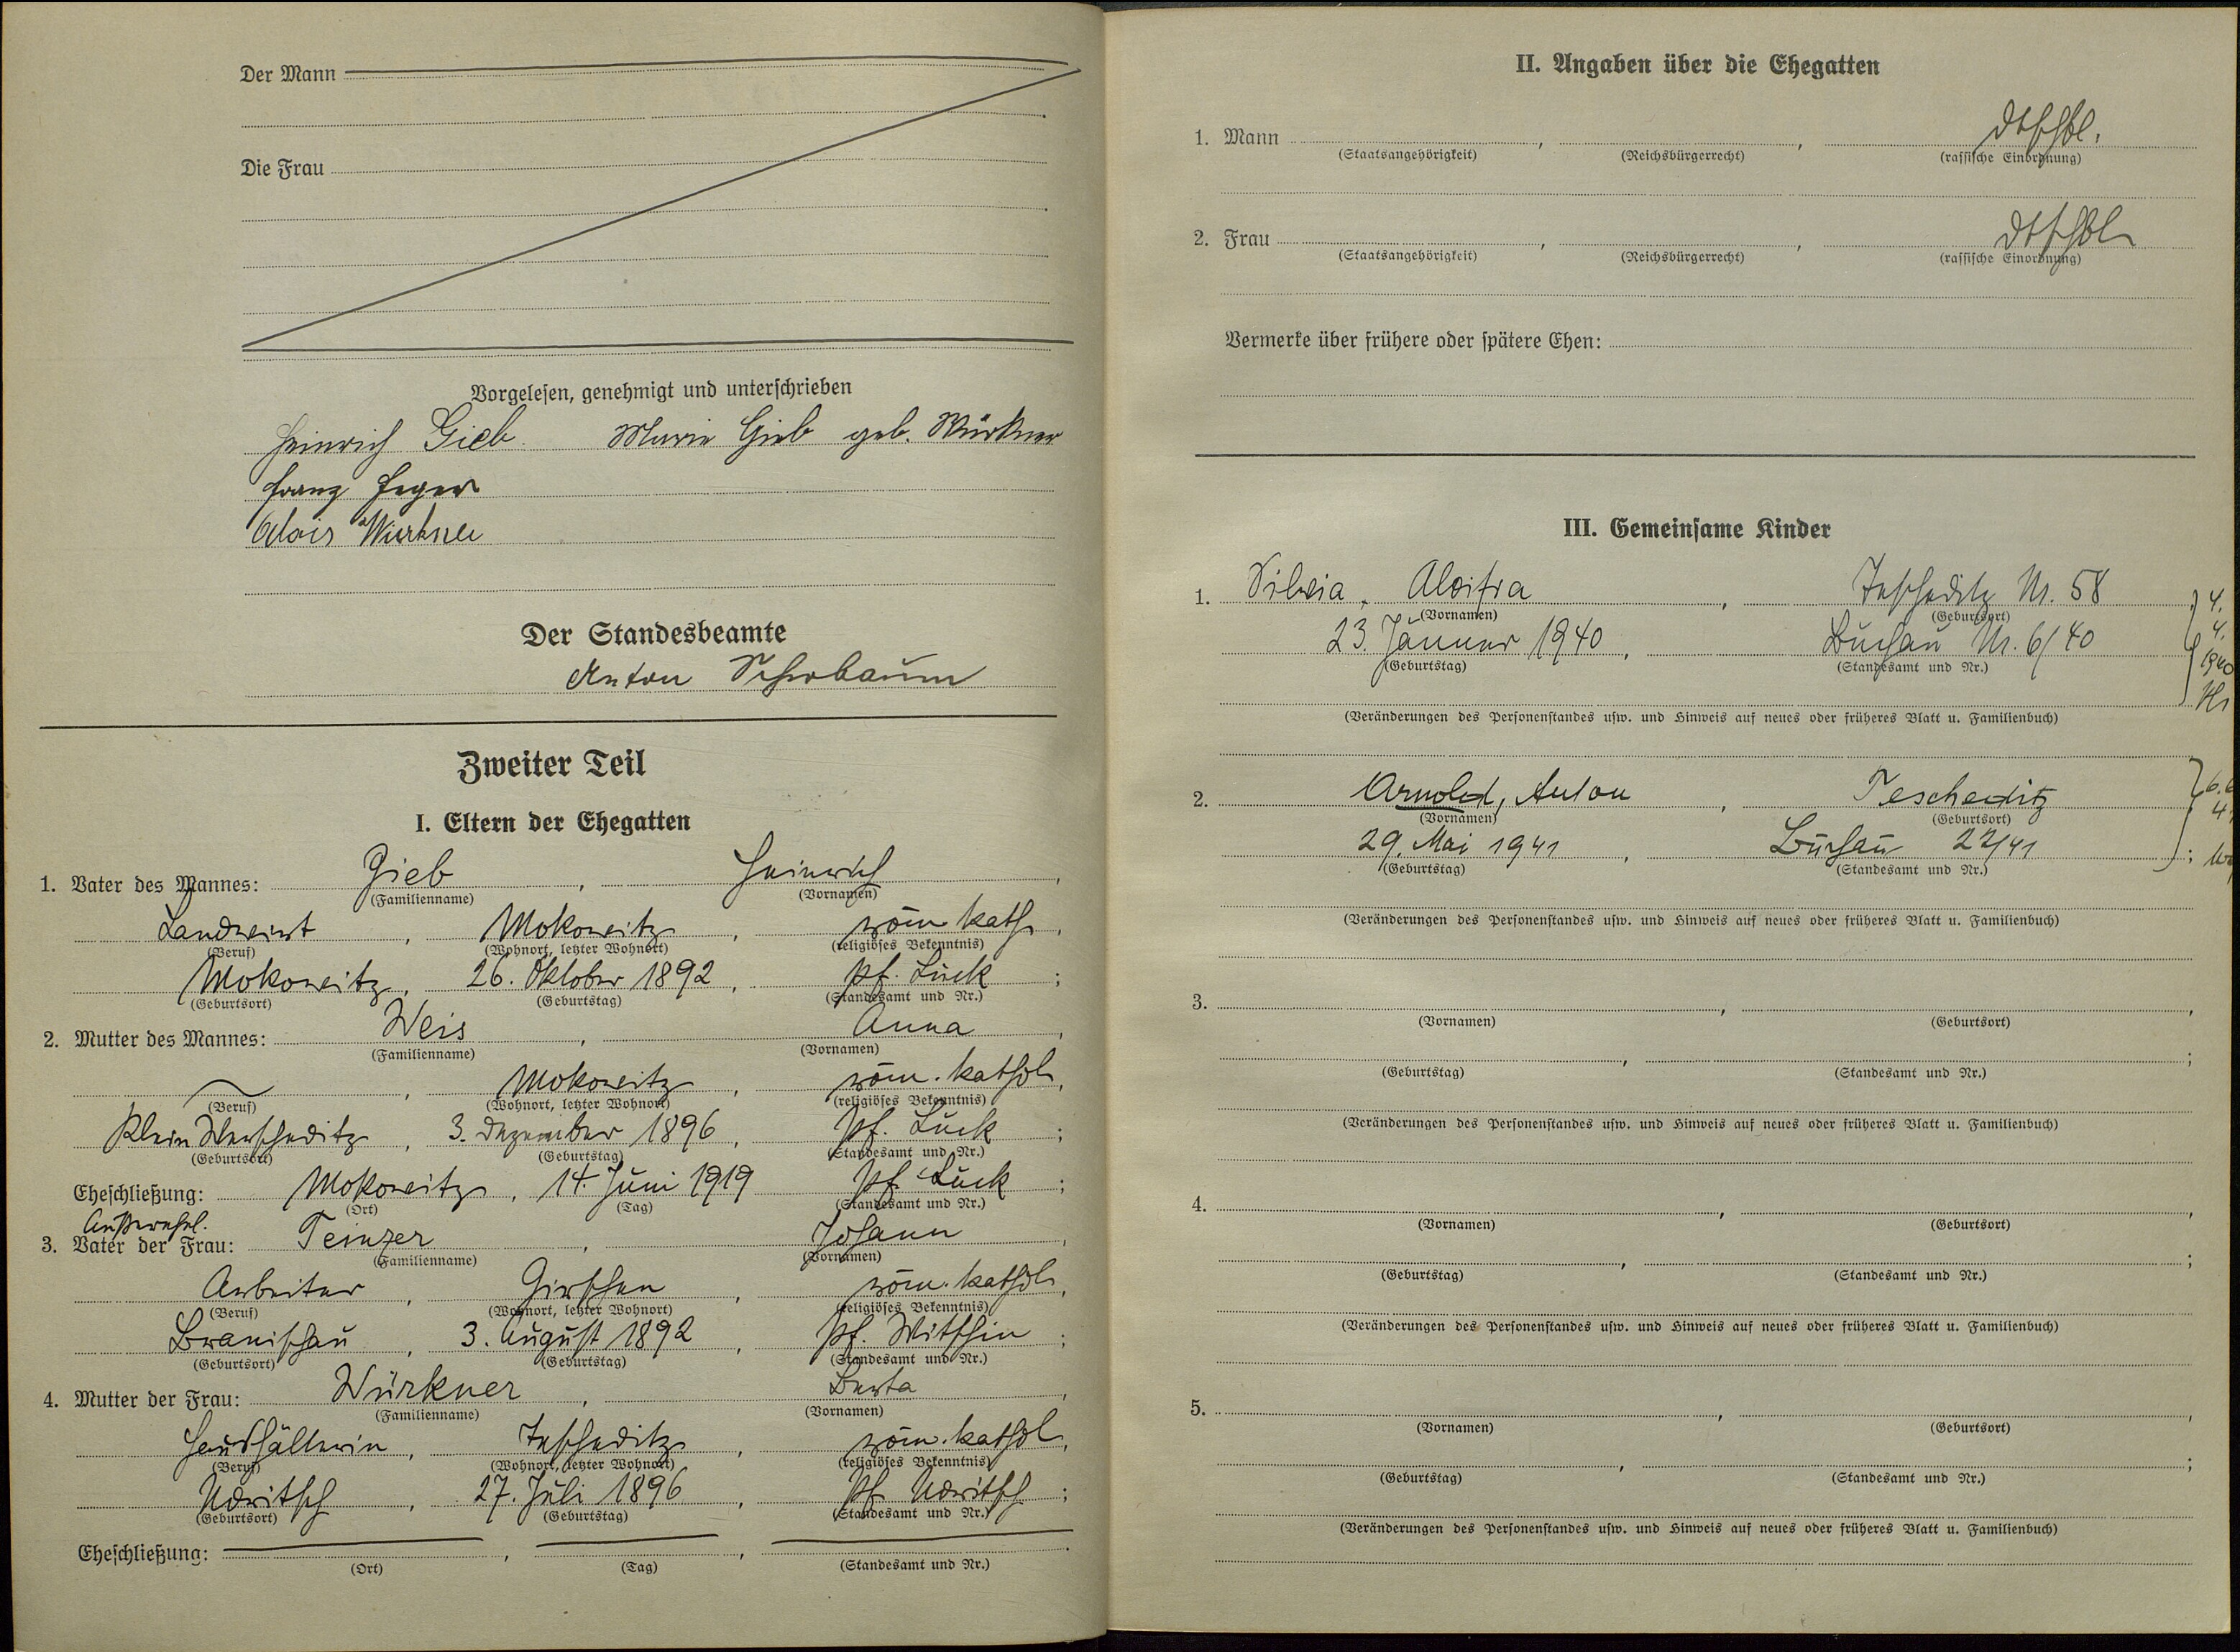 Der Mann
Die Frau
Vorgelesen, genehmigt und unterschrieben
Heinrich Gieb Marie Gieb geb. Würkner
Franz Feger
Alois Würkner
Der Standesbeamte
Anton
Zweiter Teil
I. Eltern der Ehegatten
1. Vater des Mannes: Gieb, Heinrich,
(Familienname) (Vornamen)
Landwirt, Mokowitz, röm. kath.,
(Beruf) (Wohnort, letzter Wohnort) (religiöses Bekenntnis)
Mokowitz, 26. Oktober 1892, Pf. Luck;
(Geburtsort) (Geburtstag) (Standesamt und Nr.)
2. Mutter des Mannes: Weis, Anna,
(Familienname) (Vornamen)
Mokowitz, röm. kathol.,
(Beruf) (Wohnort, letzter Wohnort) (religiöses Bekenntnis)
Klein Werscheditz, 3. Dezember 1896, Pf. Luck;
(Geburtsort) (Geburtstag) (Standesamt und Nr.)
Eheschließung: Mokowitz, 14. Juni 1919 Pf. Luck;
(Ort) (Tag) (Standesamt und Nr.)
Außerehel.
3. Vater der Frau: Teinzer, Johann,
(Familienname) (Vornamen)
Arbeiter, Girschen, röm. kathol.,
(Beruf) (Wohnort, letzter Wohnort) (religiöses Bekenntnis)
Branischau, 3. August 1892, Pf. Witschin;
(Geburtsort) (Geburtstag) (Standesamt und Nr.)
4. Mutter der Frau: Würkner, Berta,
(Familienname) (Vornamen)
Haushälterin, Tescheditz, röm. kathol.,
(Beruf) (Wohnort, letzter Wohnort) (religiöses Bekenntnis)
Udritsch, 27. Juli 1896, Pf. Udritsch;
(Geburtsort) (Geburtstag) (Standesamt und Nr.)
Eheschließung:
(Ort) (Tag) (Standesamt und Nr.)
II. Angaben über die Ehegatten
1. Mann, , dtschbl.
(Staatsangehörigkeit) (Reichsbürgerrecht) (rassische Einordnung)
2. Frau, , dtschbl.
(Staatsangehörigkeit) (Reichsbürgerrecht) (rassische Einordnung)
Vermerke über frühere oder spätere Ehen:
III. Gemeinsame Kinder
1. Silvia, Aloisia, Tescheditz Nr. 58 4.
(Vornamen) (Geburtsort) 4.
23. Jänner 1940, Buchau Nr. 6/40 1940
(Geburtstag) (Standesamt und Nr.)
(Veränderungen des Personenstandes usw. und Hinweis auf neues oder früheres Blatt u. Familienbuch)
2. Arnold, Anton, Tescheditz
(Vornamen) (Geburtsort)
29. Mai 1941, Buchau 22/41;
(Geburtstag) (Standesamt und Nr.)
(Veränderungen des Personenstandes usw. und Hinweis auf neues oder früheres Blatt u. Familienbuch)
3. , ,
(Vornamen) (Geburtsort)
, ;
(Geburtstag) (Standesamt und Nr.)
(Veränderungen des Personenstandes usw. und Hinweis auf neues oder früheres Blatt u. Familienbuch)
4. , ,
(Vornamen) (Geburtsort)
;
(Geburtstag) (Standesamt und Nr.)
(Veränderungen des Personenstandes usw. und Hinweis auf neues oder früheres Blatt u. Familienbuch)
5. , ,
(Vornamen) (Geburtsort)
, ;
(Geburtstag) (Standesamt und Nr.)
(Veränderungen des Personenstandes usw. und Hinweis auf neues oder früheres Blatt u. Familienbuch)